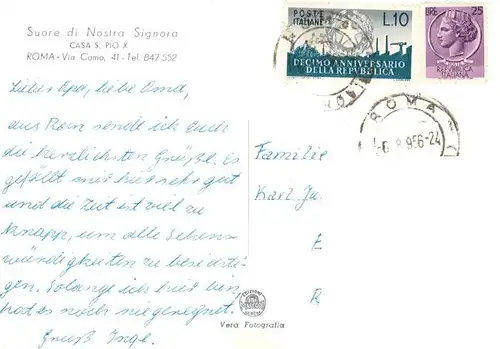 Suore di Nostra Signora
CASA S. PIO X
ROMA - Via Como, 41 - Tel. 847.552
POSTE ITALIANE L.10
DECIMO ANNIVERSARIO
DELLA REPUBBLICA
LIRE 25
REPVBBLICA
ITALIANA
ROMA
-6 8 956-24
Lieber Opa, liebe Oma,
aus Rom sende ich Euch
die herzlichsten Grüße. Es
gefällt mir hier sehr gut
und die Zeit ist viel zu
knapp, um alle Sehens
würdigkeiten zu besichti-
gen. Solange ich hier bin,
hat es noch nie geregnet.
Gruß Inge.
Familie
Karl Ju.
E
R
Vera Fotografia